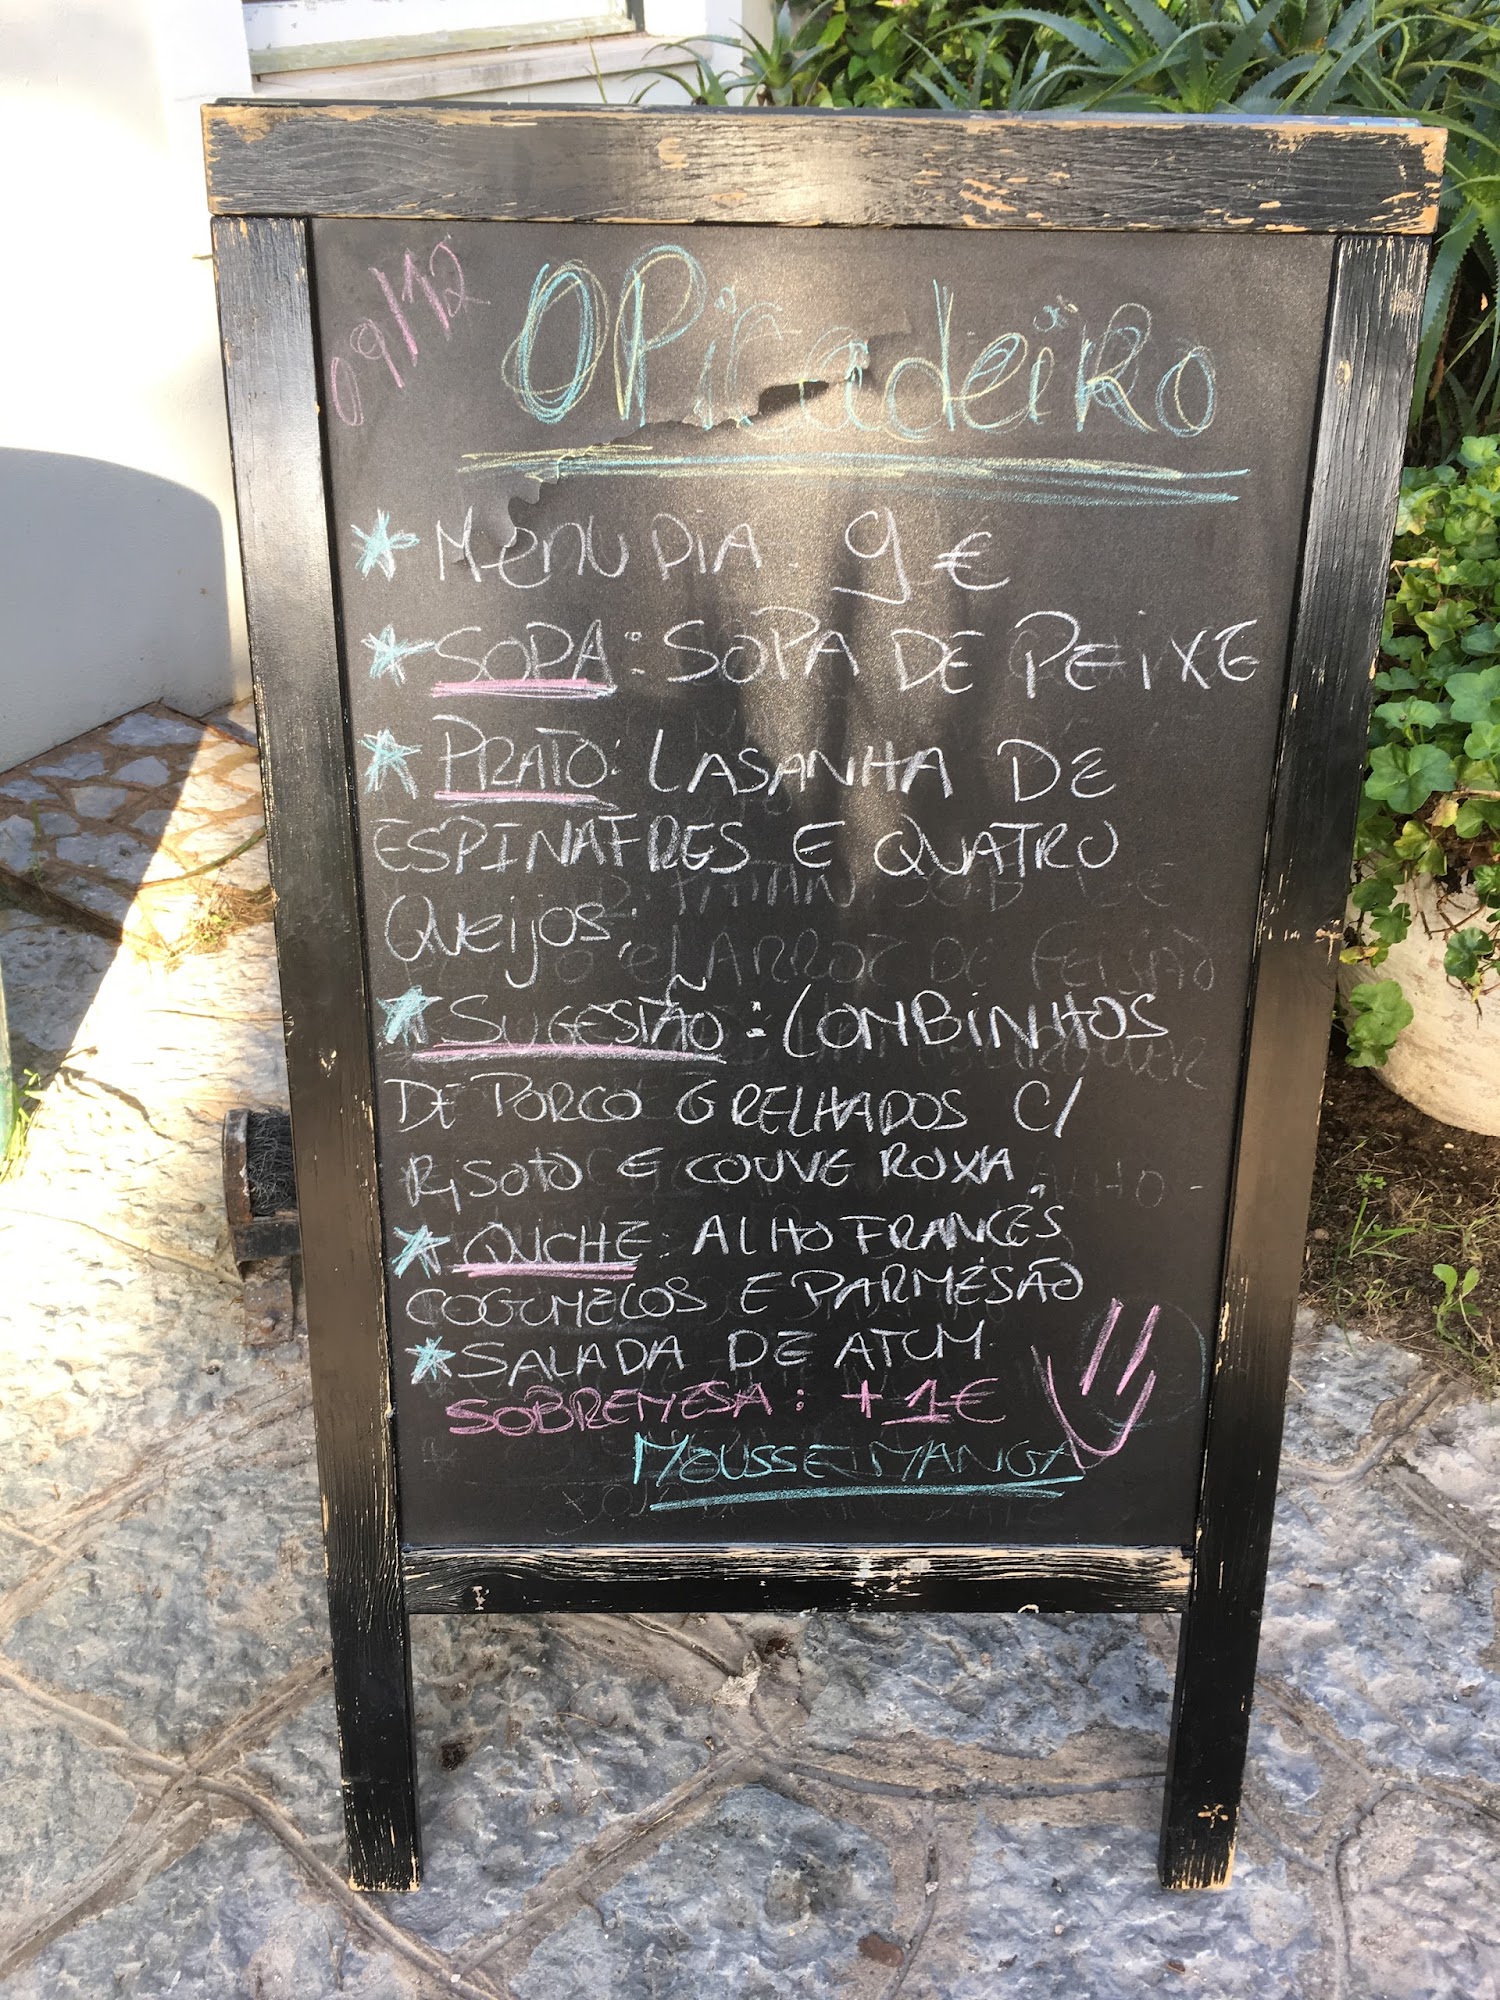 09/12
O Picadeiro
* MENU DIA 9 €
* SOPA: SOPA DE PEIXE
* PRATO: LASANHA DE
ESPINAFRES E QUATRO
QUEIJOS.
* SUGESTÃO: LOMBINHOS
DE PORCO GRELHADOS C/
RISOTO E COUVE ROXA.
* QUICHE: ALHO FRANCÊS
COGUMELOS E PARMESÃO
* SALADA DE ATUM
SOBREMESA: +1€
MOUSSE MANGA